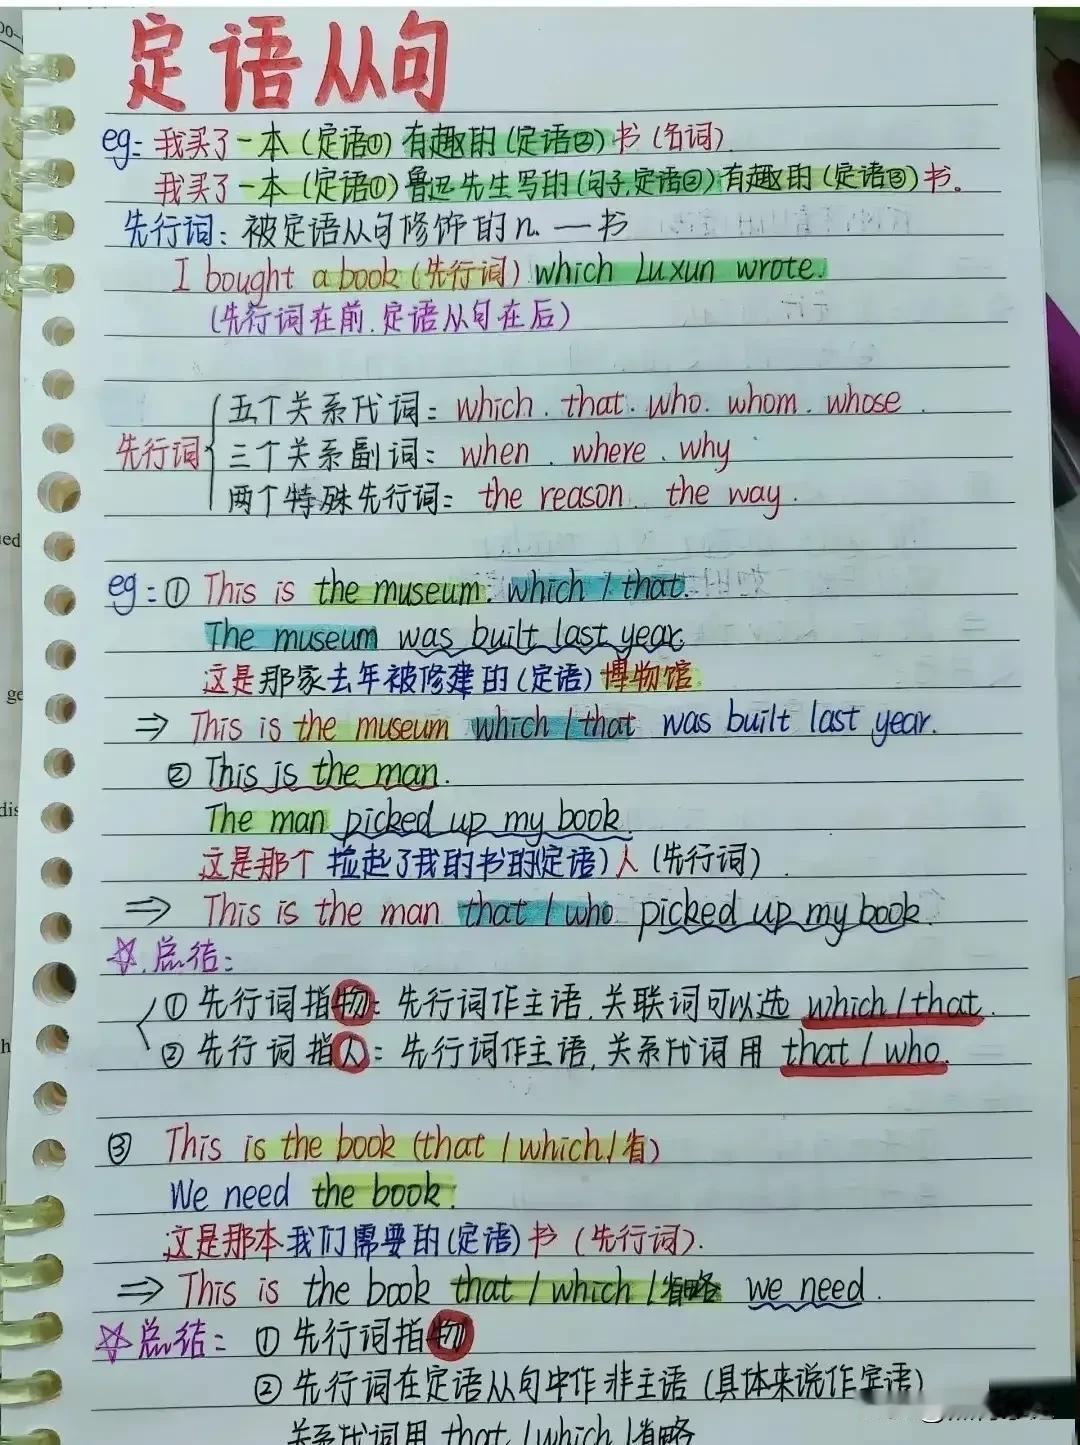 定语从句
eg: 我买了一本(定语①)有趣的(定语②)书(名词).
我买了一本(定语①)鲁迅先生写的(句子,定语②)有趣的(定语③)书。
先行词: 被定语从句修饰的n. — 书
I bought a book (先行词) which Luxun wrote.
(先行词在前.定语从句在后)
五个关系代词: which . that . who . whom . whose .
先行词 三个关系副词: when . where . why
两个特殊先行词: the reason . the way .
eg: ① This is the museum. which / that.
The museum was built last year.
这是那家去年被修建的(定语)博物馆.
⇒ This is the museum which / that was built last year.
② This is the man.
The man picked up my book.
这是那个捡起了我的书的(定语)人(先行词).
⇒ This is the man that / who picked up my book.
☆.总结:
① 先行词指物: 先行词作主语,关联词可以选 which / that.
② 先行词指人: 先行词作主语,关系代词用 that / who.
③ This is the book (that / which / 省)
We need the book.
这是那本我们需要的(定语)书(先行词).
⇒ This is the book that / which / 省略 we need.
☆总结: ① 先行词指物
② 先行词在定语从句中作非主语(具体来说作定语)
关系代词用 that / which / 省略